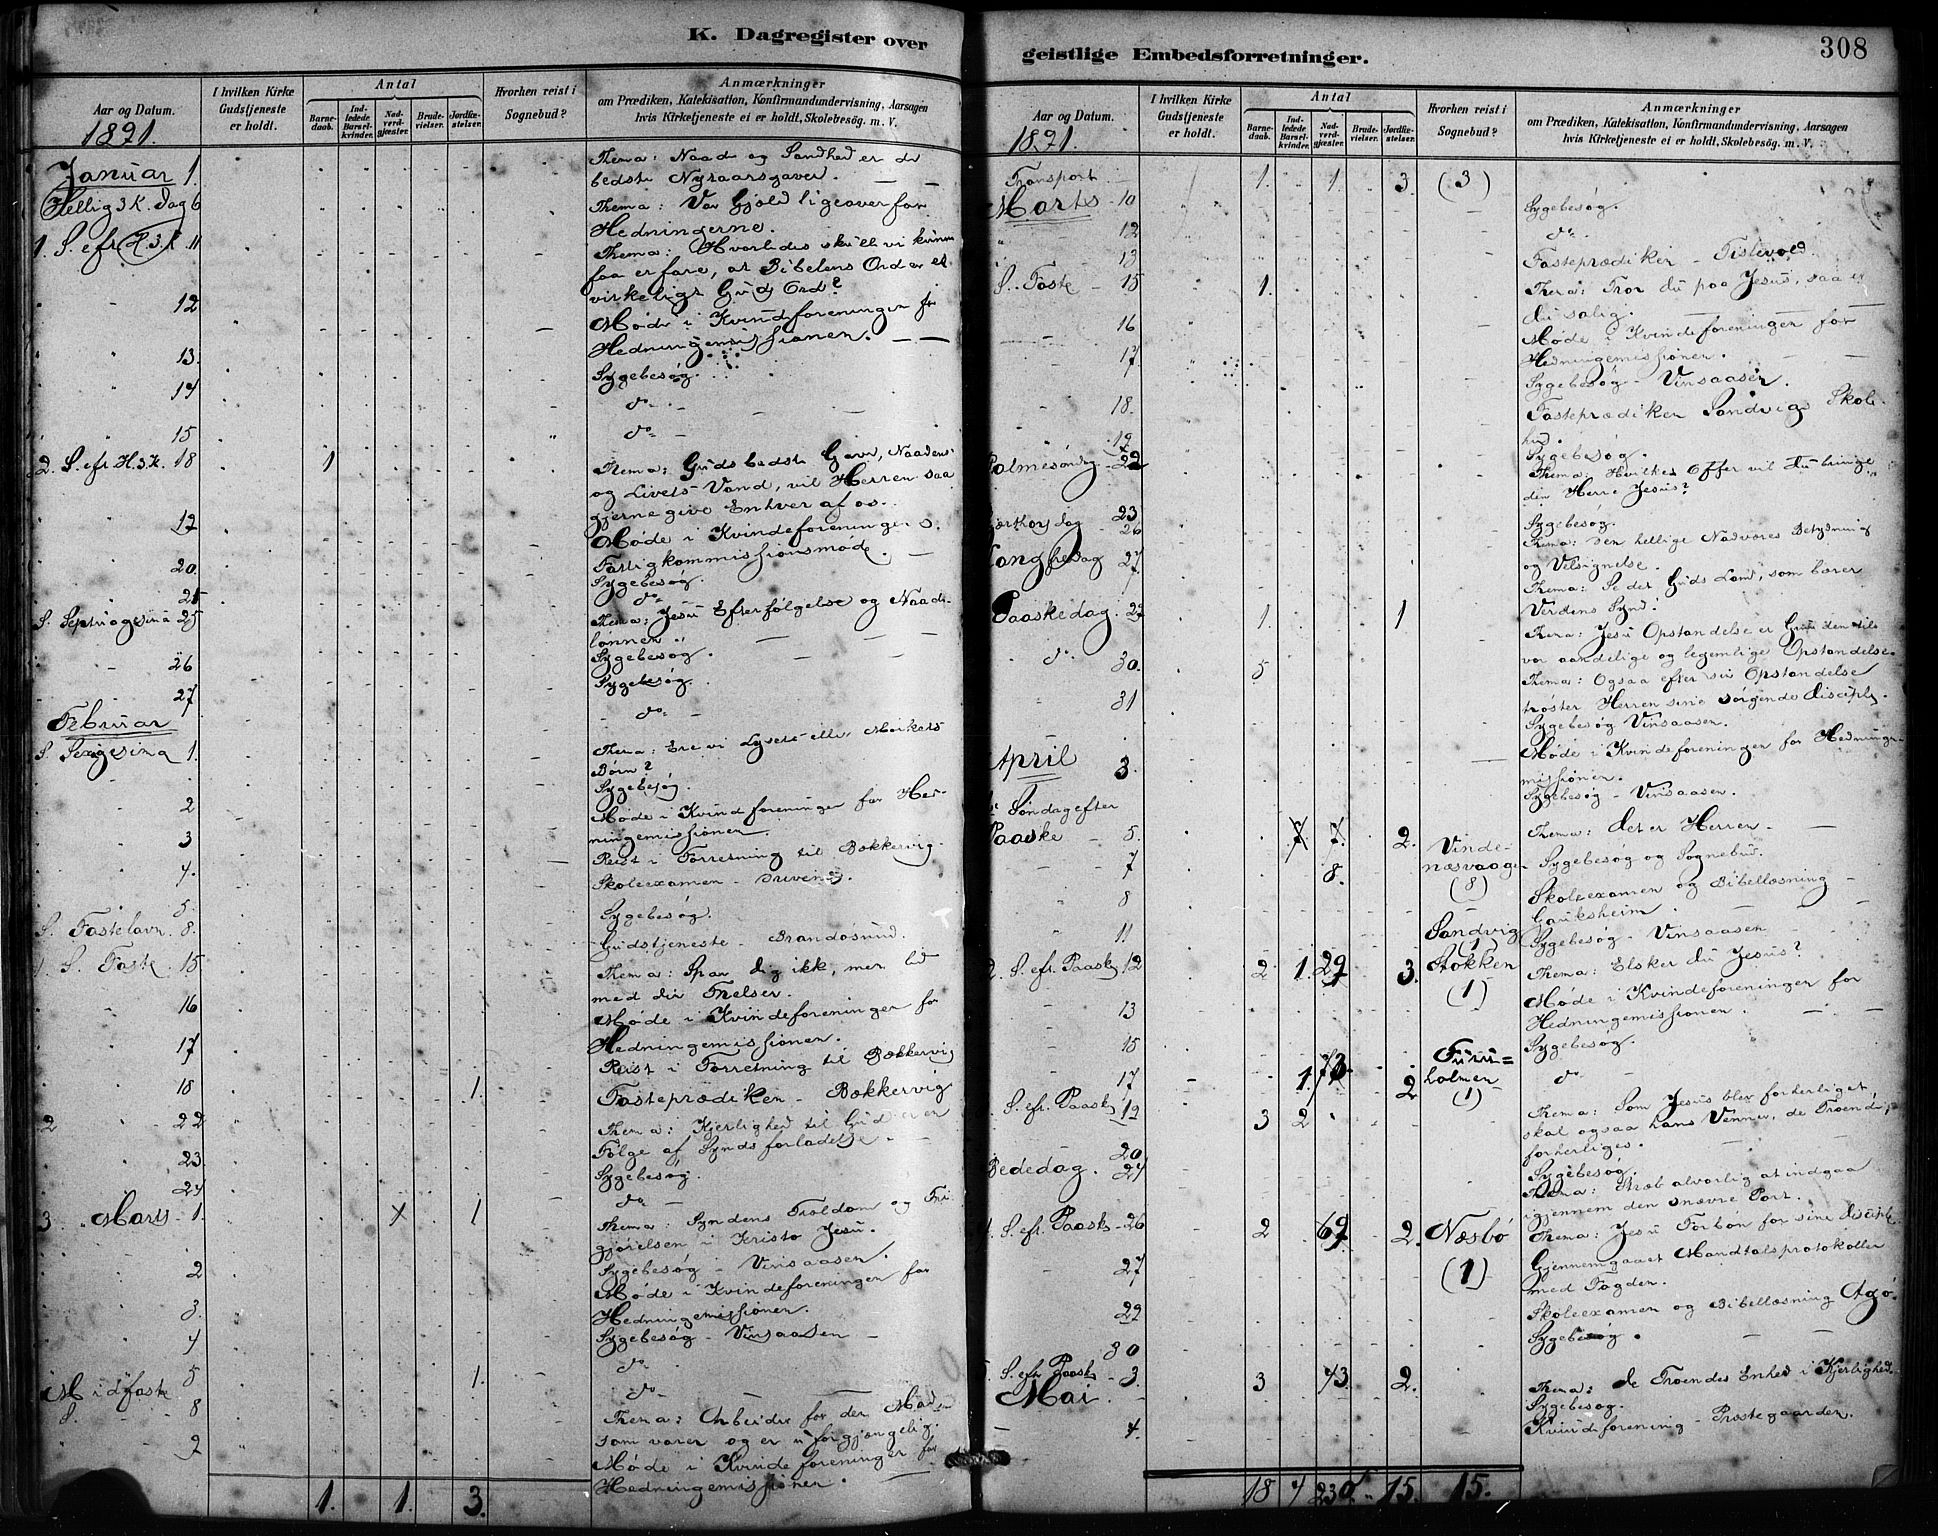 K. Dagregister over
Aar og Datum.
1891.
I hvilken Kirke Gudstjeneste er holdt.
Antal
Barne-daab.
Ind-ledede Barsel-kvinder.
Nad-verd-gjæster.
Brude-vielser.
Jordfæ-stelser.
Hvorhen reist i Sognebud?
Anmærkninger
om Prædiken, Katekisation, Konfirmandundervisning, Aarsagen
hvis Kirketjeneste ei er holdt, Skolebesøg. m. V.
Januar 1. Thema: Naade og Sandhed er de
bedste Nytaarsgaver.
Hellig 3 K. Dag 6 Thema: Vor Gjæld ligeoverfor
Hedningerne.
1. S. eft H. 3. K. 11 Thema: Hvorledes skulle vi kunne
faa erfare, at Bibelens Ord er et
virkeligt Guds Ord?
12 Møde i Kvindeforeningen for
Hedningemissionen.
13. Sygebesøg.
14 do.
15 do
2. S. eft H. 3. K. 18 1 Thema: Guds bedste Gave, Naadens
og Livets Vand, vil Herren saa
gjerne give Enhver af os.
19 Møde i Kvindeforeningen
Fattigkommissionsmøde.
20. Sygebesøg.
do
S. Septuagesima 25 Thema: Jesu Efterfølgelse og Naade-
lønnen.
26 Sygebesøg.
27 Sygebesøg.
do
Februar
S. Sexagesima 1. Thema: Ere vi Lysets eller Mørkets
Børn?
Sygebesøg.
2 Møde i Kvindeforeningen for Hed-
ningemissionen.
3 Reist i Forretning til Bækkervig.
4. Skoleexamen - Drivenes.
5. Sygebesøg.
S. Fastelavn. 8. Gudstjeneste - Brandasund.
1. S. Faste. 15 Thema: Spar dig ikke, men lid
med din Frelser.
16 Møde i Kvindeforeningen for
Hedningemissionen.
17 Reist i Forretning til Bækkervig
18 1. Fasteprædiken - Bækkervig
2 22 Thema: Kjerlighed til Gud er en
Følge af Synds forladelse.
23. Sygebesøg.
24 do
3. Marts 1. 1 Thema: Syndens Trældom og Fri
gjørelsen i Kristo Jesu.
Sygebesøg - Vinsaasen.
2 Møde i Kvindeforeningen for
Hedningemissionen.
3. Sygebesøg - Vinsaasen
4 do
5 1. do
Midfaste
S. 8 Thema: Arbeider for den Mad
som varer og er uforgjængelig.
9 Møde i Kvindeforeningen for
Hedningemissionen.
1. 1. 3.
geistlige Embedsforretninger.
308
Aar og Datum.
1891.
I hvilken Kirke Gudstjeneste er holdt.
Antal
Barne-daab.
Ind-ledede Barsel-kvinder.
Nad-verd-gjæster.
Brude-vielser.
Jordfæ-stelser.
Hvorhen reist i Sognebud?
Anmærkninger
om Prædiken, Katekisation, Konfirmandundervisning, Aarsagen
hvis Kirketjeneste ei er holdt, Skolebesøg. m. V.
Transport 1. 1. 3. (3)
Marts 10 Sygebesøg.
12 do.
13 Fasteprædiken - Tislevold.
S. Faste 15 1. Thema: Tror du paa Jesus, saa er
du salig.
16 Møde i Kvindeforeningen for
Hedningemissionen.
17 Sygebesøg - Vinsaasen.
18. Fasteprædiken Sandvig Skole-
hus.
19 Sygebesøg.
Palmesøndag 22 Thema: Hvilket Offer vil du bringe
den Herre Jesus?
23 Sygebesøg.
Skjærthorsdag 26 Thema: Den hellige Nadveres Betydning
og Velsignelse.
Langfredag 27 Thema: Se det Guds Lam, som bærer
Verdens Synd!
Paaskedag. 29 1. 1 Thema: Jesu Opstandelse er Grunden til
vor aandelige og legemlige Opstandelse.
do. 30. 5 Thema: Ogsaa efter sin Opstandelse
trøster Herren sine sørgende Disciple.
31 Sygebesøg Vinsaasen.
Møde i Kvindeforeningen for Hedninge-
missionen.
April 3. Sygebesøg - Vinsaasen.
1e Søndag efter
Paaske 5. 2. Thema: Det er Herren.
7 8. Vinde-
næsvaagen
(8) Sygebesøg og Sognebud.
8 Skoleexamen og Bibellæsning
Gauksheim.
11 Sandvig
(1) Sygebesøg - Vinsaasen
2. S. eft. Paaske 12 2 1. 29 3. Stokken
(1) Thema: Elsker du Jesus?
13 Møde i Kvindeforeningen for
Hedningemissionen.
15 Sygebesøg.
17 1. 73. 2 Furu=
holmen
(1) do
S. eft. Paaske 19 3 2 Thema: Som Jesus blev forherliget
skal ogsaa hans Venner, de Troende,
forherliges.
20 Sygebesøg.
Bededag. 24 Thema: Stræb alvorlig at indgaa
igjennem den snevre Port.
4. S. eft Paaske 26 2 69 2. Næsbø
(1) Thema: Jesu Forbøn for sine Disciple
27 Gjennemgaaet Mandtalsprotokoller
med Fogden.
29 Skoleexamen og Bibellæsning Agø.
30 Sygebesøg.
5. S. eft Paaske
Mai 3. 3 43. 2. Thema: De Troendes Enhed i Kjerlighed.
Sygebesøg.
4. Kvindeforening - Prestegaarden.
18 4 230 15. 15.